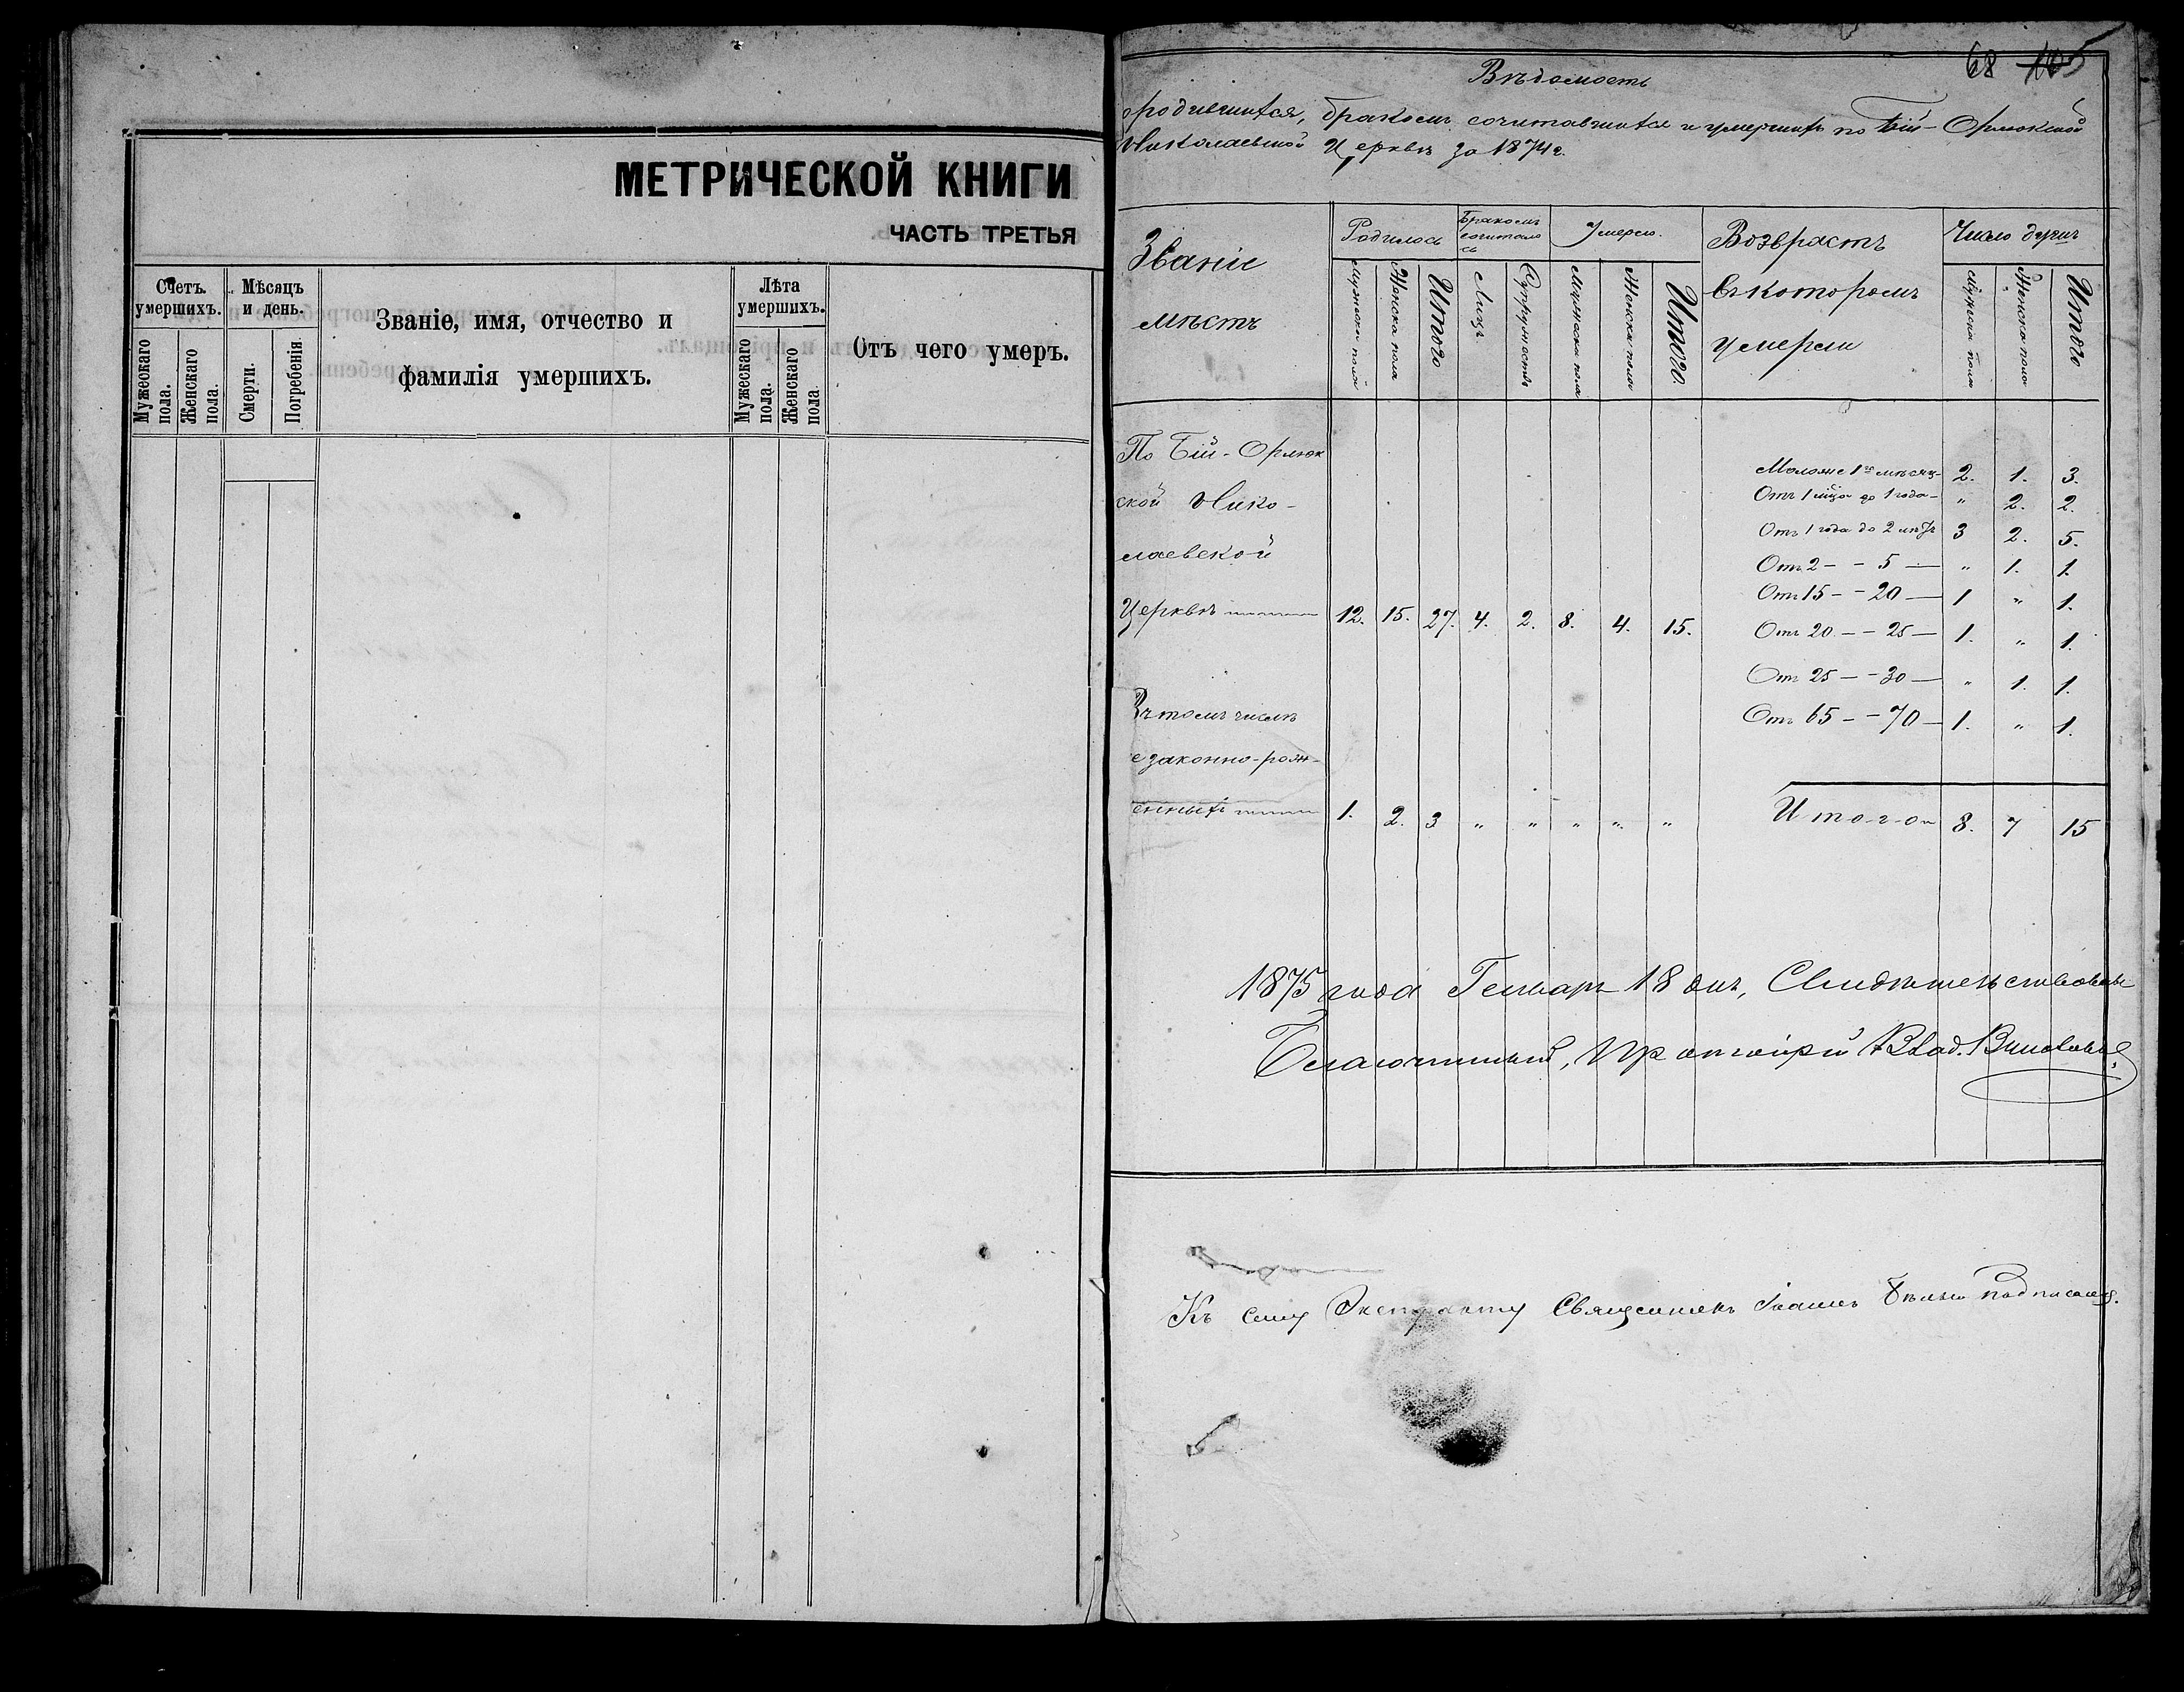 МЕТРИЧЕСКОЙ КНИГИ
ЧАСТЬ ТРЕТЬЯ
Счетъ умершихъ.
Мѣсяцъ и день.
Званіе, имя, отчество и
фамилія умершихъ.
Лѣта умершихъ.
Отъ чего умеръ.
Мужескаго пола.
Женскаго пола.
Смерти.
Погребенія.
Мужескаго пола.
Женскаго пола
68 105
Вѣдомость
родившихся, бракомъ сочитавшихся и умершихъ по Бій-Орлюкской
Николаевской Церквѣ за 1874 г.
Званіе мѣстъ
Родилось
Бракомъ сочиталось
Умерло.
Возврастъ въ которомъ умерли
Число душъ
Мужеска пола
Женска пола
Итого
Лицъ
Супружествъ
Мужеска пола
Женска пола
Итого.
Мужеска пола
Женска пола
Итого
По Бій-Орлюк
ской Нико-
лаевской
Церквѣ 12. 15. 27. 4. 2. 8. 4. 15.
Въ томъ числѣ
езаконно-рож-
енныхъ 1. 2. 3 " " " " "
Моложе 1го мѣсяц- 2. 1. 3.
Отъ 1 мца до 1 года - " 2. 2.
Отъ 1 года до 2 лѣтъ 3 2. 5.
Отъ 2 - - 5 — " 1. 1.
Отъ 15 - - 20 — 1 " 1.
Отъ 20 - - 25 — 1. " 1.
Отъ 25 - - 30 — " 1. 1.
Отъ 65 - - 70 — 1. " 1.
Итого 8. 7 15
1875 года Генваря 18 дня, Свидѣтельствовалъ
Благочинный, Протоіерей Влад.
Къ сему Экстракту Священникъ Іоаннъ подписался.